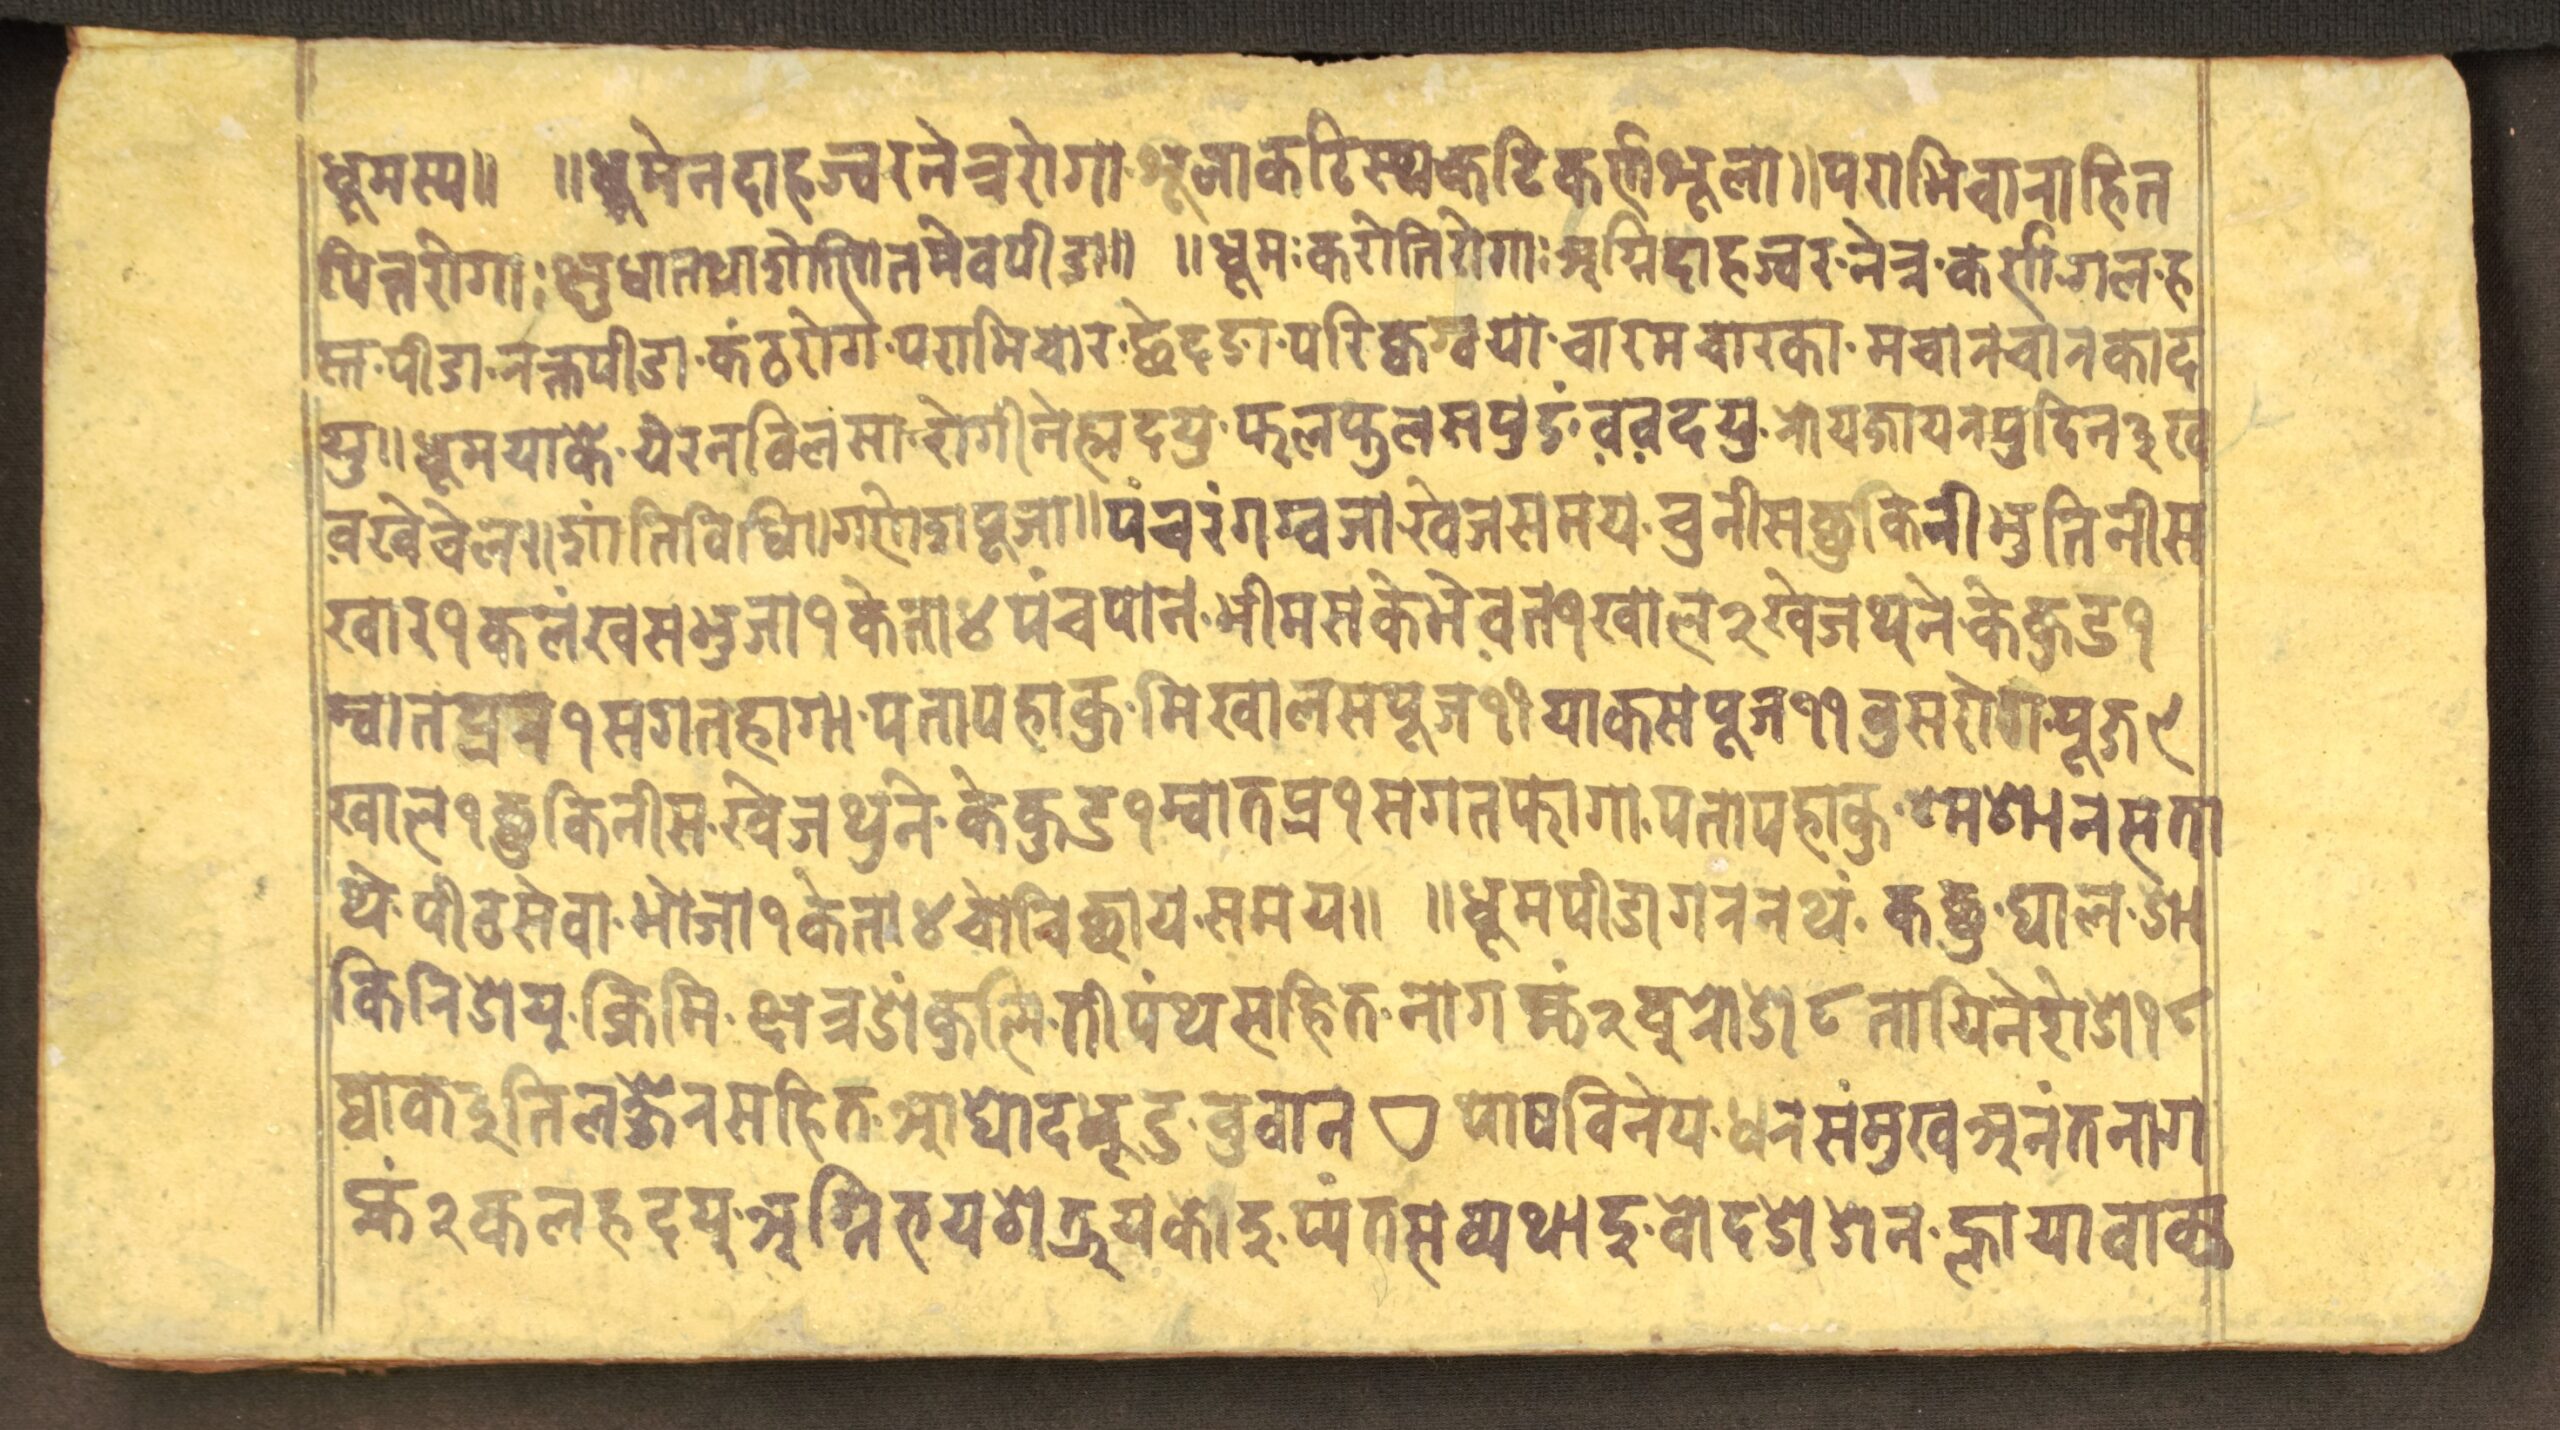 धूमस्य॥ ॥धूमेनदाहज्वरनेत्ररोगा·शूलाकटिस्थकटिकर्णशूला॥पराभिचाराहित
पित्तरोगाः क्षुधातथाशोणितमेवपीडा॥ ॥धूमःकरोतिरोगाः अग्निदाहज्वर·नेत्र·कर्ण·गल·ह
स्त·पीडा·नक्तपीडा·कंठरोग·पराभिचार·छेदङा·परिक्वग्वया·चारमचारका·मचानचानकाद
यु॥धूमयाके·यैरनविलसा·रोगीनेह्मदयु·फलफुलसपुङं·वृवृदयु·नोयजायनपुदिन३ख
वृखेचेल॥शांतिविधि॥गणेशपूजा॥पंचरंगग्वजाखेजसमय·चुनीसछुकिनीभुतिनीस
खार१कलंखसभुजा१केता४पंचपान·भीमसकेभेवत१खाल२खेजथुने·केकुड१
म्वातप्रत्र१सगतहागा·पतापहाकु·मिखालसपूज११याकसपूज११वुसरोगपूज९
खाल१छुकिनीस·खेजथुने·केकुड१म्वातप्र१सगतफागा·पतापहाकु·श्मशानसता
थे·पीठसेवा·भोजा१केता४चोचिछाय·समय॥ ॥धूमपीडागननथं·कछु·घाल·शा
किनिशेयु·क्रिमि·क्षत्रशंकुलि·तीपंथसहित·नागह्मं२पुत्रोशे८तायिनेरोशे१८
घाकदुतिलछेनसहित·आघोदधूड·वुवान ७ पाषविनेय·धनसंमुखअनंतनाग
ह्मं२कलहदयु·अग्निभयशेत्रुयकोदु·प्यंतसव्यथादु·वोदशेशेन·ह्लायावाक्य